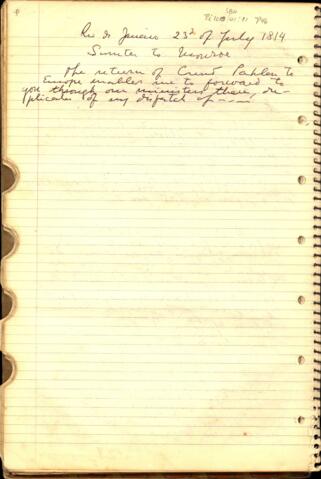 Rio de Janeiro 23d of July 1814
Sumter to Monroe
The return of Count Pahlen to
Europe enables me to forward to
you through our ministers there, du-
plicates of my dispatch of ----